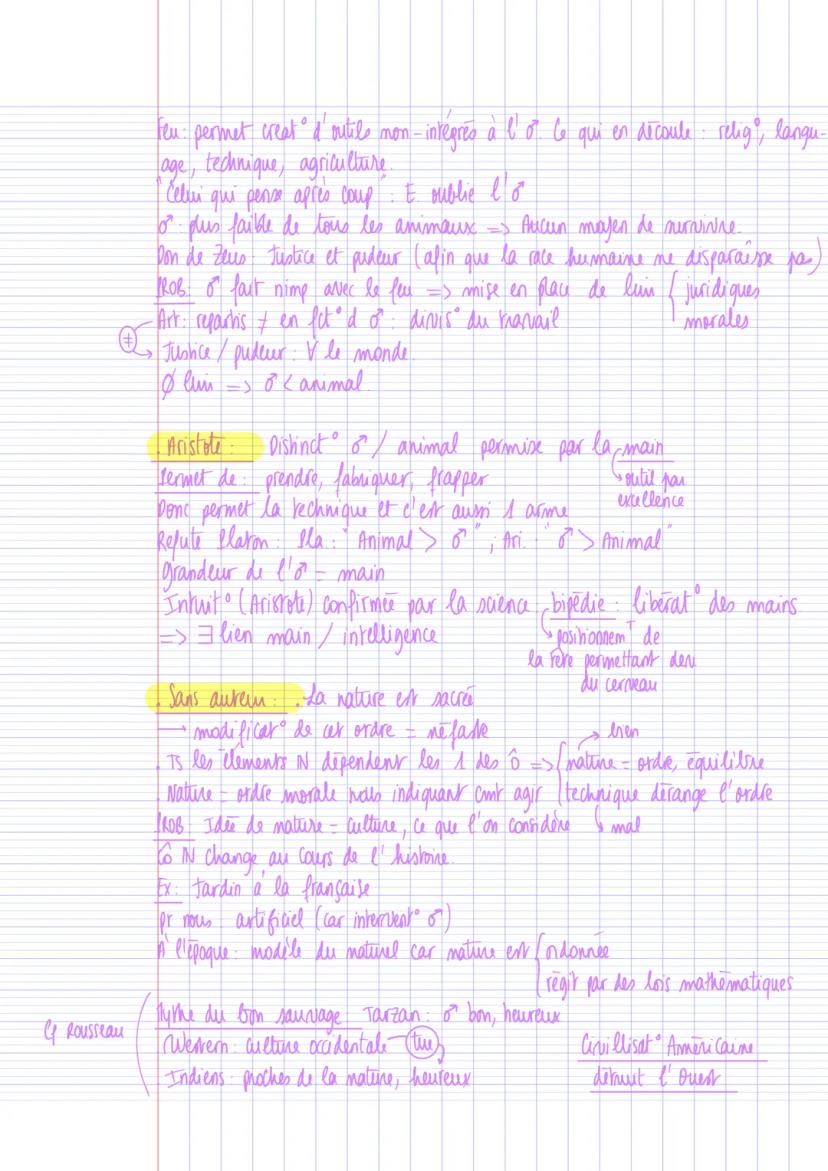 Feu : permet creat° d'outils non-intégrés à l'♂. Ce qui en découle : relig°, langu-
age, technique, agriculture.
"Celui qui pense après coup" : E. oublie l'♂
♂ : plus faible de tous les animaux => Aucun moyen de survivre.
Don de Zeus : Justice et pudeur (afin que la race humaine ne disparaisse pas)
PROB : ♂ fait nimp avec le feu => mise en place de lim { juridiques
morales
Art : repartis ≠ en fct° d ♂ : divis° du travail
≠
Justice / pudeur : ∀ le monde.
Ø lim => ♂ < animal.
. Aristote : Distinct° ♂ / animal permise par la main
outil par
excellence
Permet de : prendre, fabriquer, frapper
Donc permet la technique et c'est aussi 1 arme
Refute Platon : Pla : "Animal > ♂" ; Ari. : "♂ > Animal"
grandeur de l'♂ = main
Intuit° (Aristote) confirmée par la science : bipédie : libérat° des mains
=> ∃ lien main / intelligence
positionnemT de
la tête permettant dev.
du cerveau
. Sans auteur : . La nature est sacré
→ modificat° de cet ordre = néfaste
bien
. Ts les élements N dépendent les 1 des ô => { nature = ordre, équilibre
. Nature = ordre morale nous indiquant cmt agir { technique dérange l'ordre
mal
PROB : Idée de nature = culture, ce que l'on considère
Cô N change au cours de l'histoire.
Ex : Jardin à la française
pr nous : artificiel (car intervent° ♂)
A l'époque : modèle du naturel car nature est { ordonnée
régit par des lois mathématiques
Cf Rousseau
Mythe du bon sauvage Tarzan : ♂ bon, heureux
Western : culture occidentale tue
Indiens : proches de la nature, heureux
Civilisat° Américaine
détruit l'Ouest